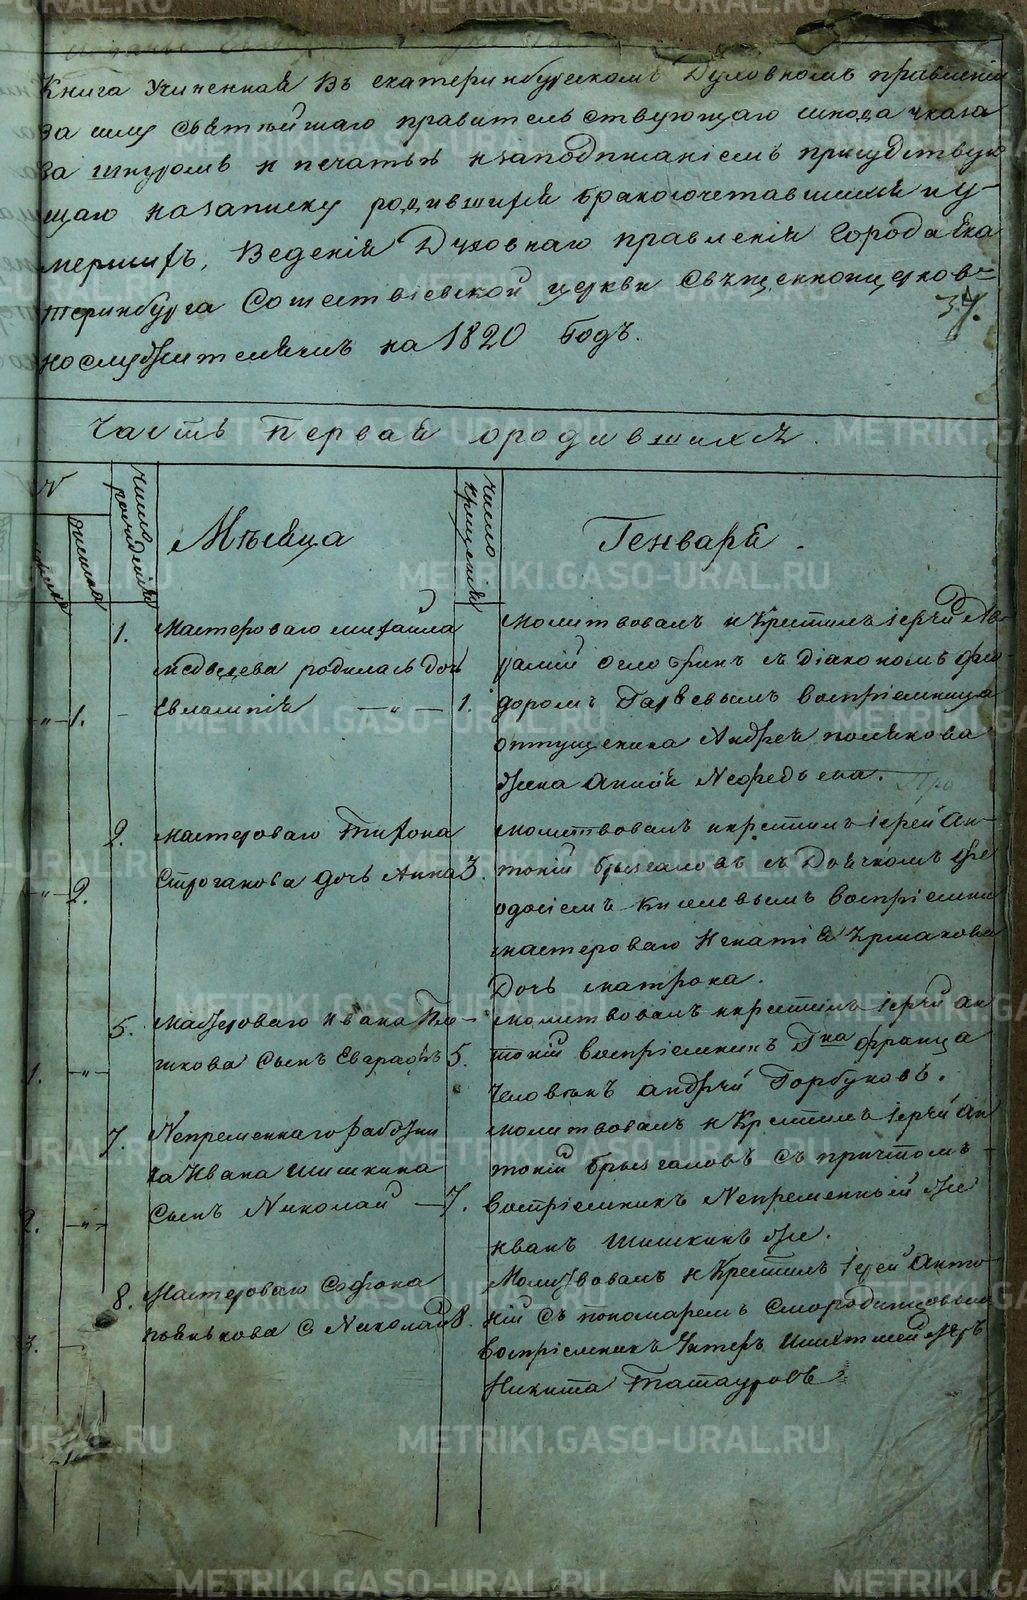 Книга Учиненная Въ екатеринбургскомъ Духовномъ правленiи
за силу Святѣйшаго правительствующаго синода указа
за шнуромъ и печатью и заподписанiемъ присудствую
щаго на записку родившихся бракосочетавшихся и у-
мершихъ, Веденiя Духовнаго правленiя Города Ека
теринбурга Сошествiевской церкви Священноицерков-
нослужителями на 1820 Годъ.
37.
Часть Первая о родившихъ.
число рожденiя
Мѣсяца
число крещенiя
Генваря
1. Мастероваго михаила
медведева родилась Дочь
1. Евлампiя — " — 1.
молитвовалъ и Крестилъ iерей
с дiакономъ фео-
доромъ воспрiемница
Андрея полякова
жена Анна
2. мастероваго Тихона
2. Строганова дочь Анна 3.
молитвовалъ и крестилъ iерей Ан-
тонiй брызгаловъ с Дьячкомъ фе
одосiемъ воспрiемни
мастероваго Игнатiя Ермакова
Дочь матрона.
5. Мастероваго ивана Пле-
шкова Сынъ Евграфъ 5.
1. — " —
молитвовалъ и крестилъ iерей ан
тонiй воспрiемникъ Гна франца
человѣкъ андрей Горбуновъ.
7. Непременнаго работни
ка Ивана шишкина
2. — " — Сынъ Николай — 7.
молитвовалъ и Крестилъ iерей Ан
тонiй брызгаловъ съ причтомъ
воспрiемникъ Непременный
иванъ шишкинъ же.
8. Мастероваго Софрона
3. пьянкова С Николай 8.
Молитвовалъ и Крестилъ iерей Анто-
нiй съ пономаремъ Смородинцовымъ
воспрiемникъ Унтеръ
Никита Татауровъ
METRIKI.GASO-URAL.RU